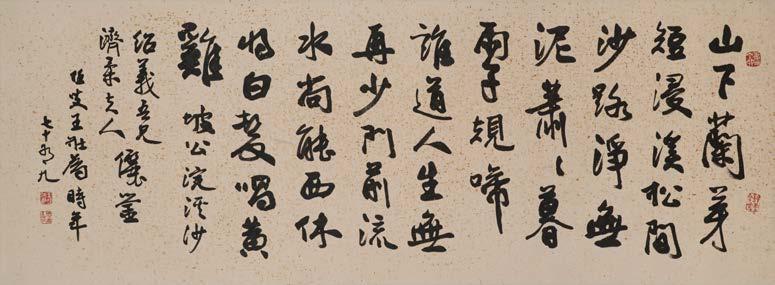 山下蘭芽
短浸溪松間
沙路淨無
泥蕭〻暮
雨子規啼
誰道人生無
再少門前流
水尚能西休
將白髮唱黃
雞 坡公浣溪沙
紹義吾兄
濟柔夫人 儷鑒
王壯為時年
七十有九